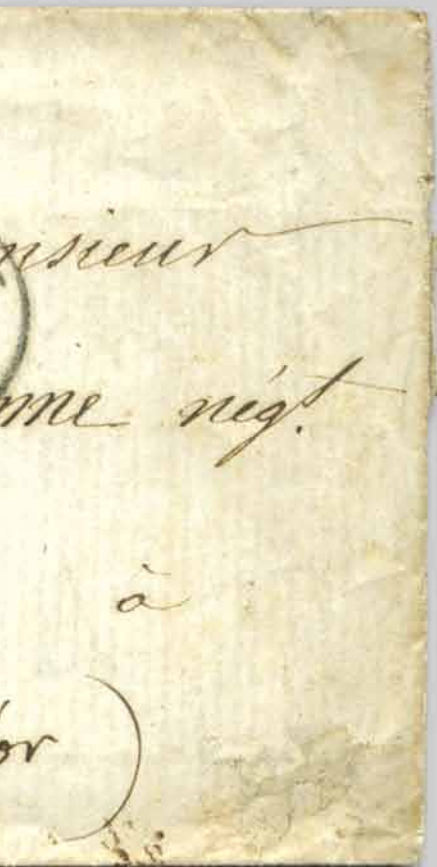 nsieur
nne négt
à
or)